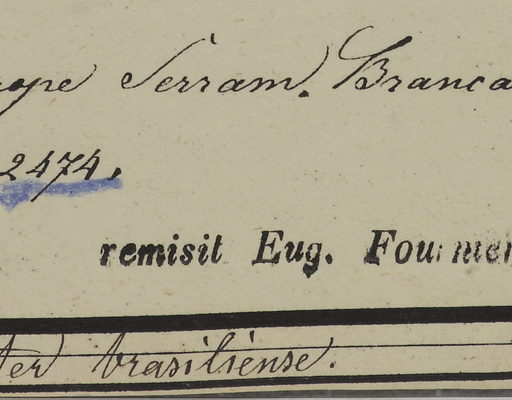 prope Serram. Branca
2474.
remisit Eug. Fournier
ter brasiliense.